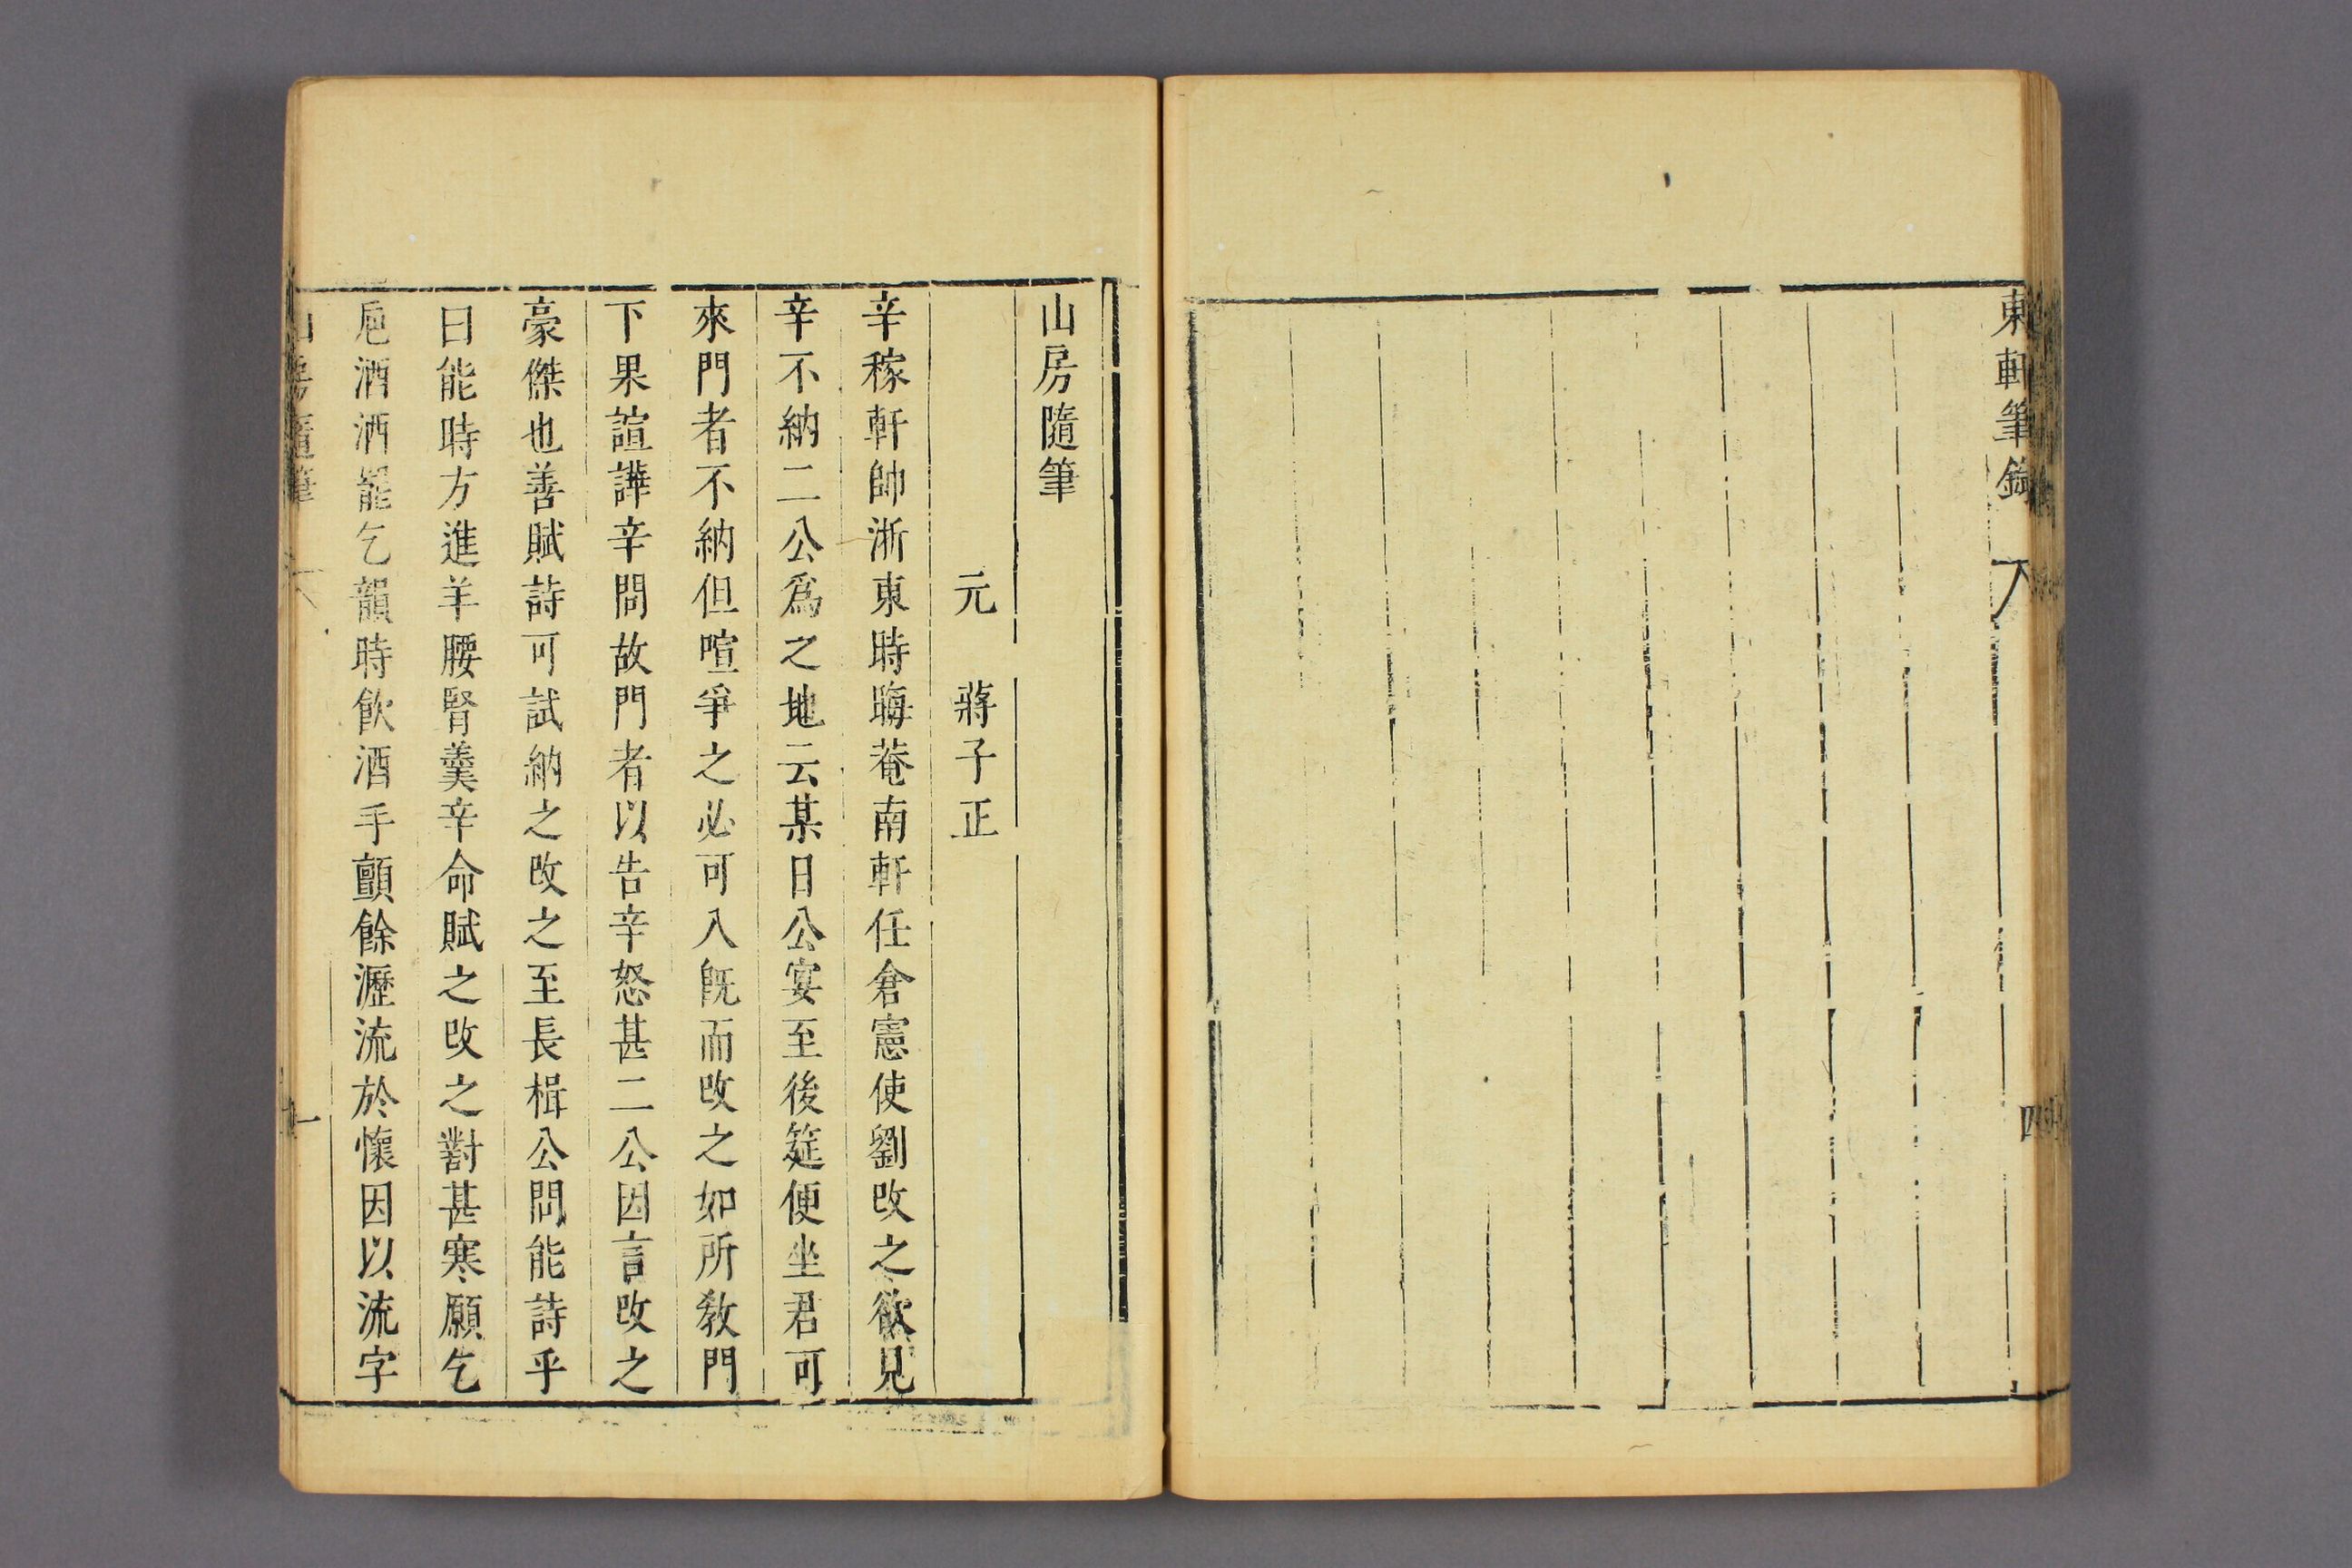 東軒筆錄
四
山房隨筆
元 蔣子正
辛稼軒帥浙東時晦菴南軒任倉憲使劉改之欲見
辛不納二公爲之地云某日公宴至後筵便坐君可
來門者不納但喧爭之必可入旣而改之如所敎門
下果諠譁辛問故門者以告辛怒甚二公因言改之
豪傑也善賦詩可試納之改之至長楫公問能詩乎
曰能時方進羊腰腎羹辛命賦之改之對甚寒願乞
巵酒酒罷乞韻時飮酒手顫餘瀝流於懷因以流字
山房隨筆
一